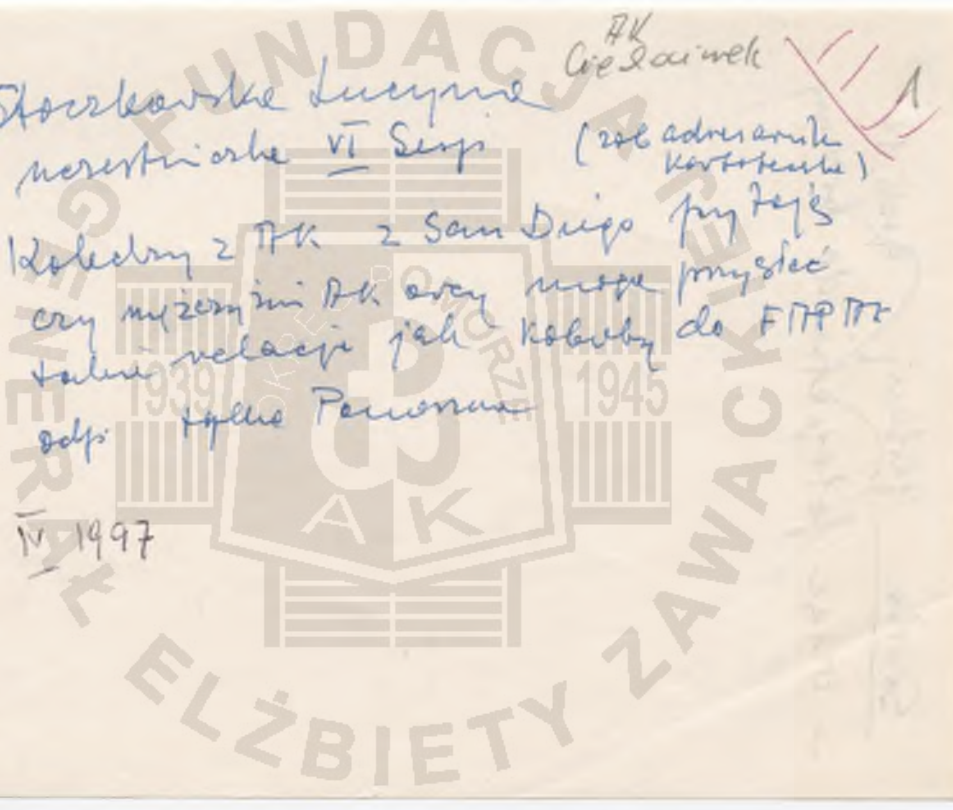 AK
III 1
Stoczkowska Lucyna
uczestniczka VI Sesji (zob adresownik
kartoteka)
Koledzy z AK z San Diego pytają
czy mężczyźni AK owcy mogą przysłać
takie relacje jak kobiety do FAPAK
odp. tylko Pomorza
IV 1997
FUNDACJA
GENERAŁ ELŻBIETY ZAWACKIEJ
OKRĘG POMORZE
1939 1945
AK